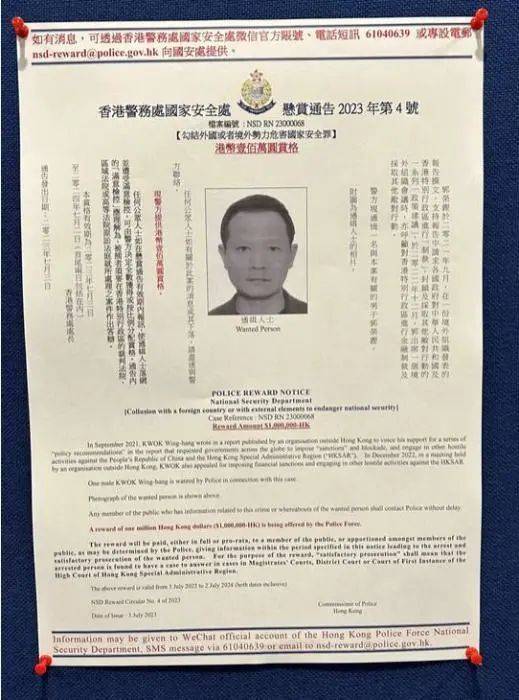 如有消息，可透過香港警務處國家安全處微信官方賬號、電話短訊 61040639 或專設電郵
nsd-reward@police.gov.hk 向國安處提供。
香港警務處國家安全處 懸賞通告 2023 年第 4 號
檔案編號：NSD RN 23000068
【勾結外國或者境外勢力危害國家安全罪】
港幣壹佰萬圓賞格
郭榮鏗於二〇二一年九月，在一份境外組織發表的
報告撰文，支持報告中請求各國政府對中華人民共和國及
香港特別行政區進行「制裁」、封鎖及採取其他敵對行動的
一系列「政策建議」。於二〇二二年十二月，郭出席一個境
外組織會議時，亦呼籲對香港特別行政區進行金融制裁及
採取其他敵對行動。
警方現通緝一名與本案有關的男子郭榮鏗。
附圖為通緝人士的相片。
任何公眾人士如有關於此案的消息或其下落，請盡速與警
方聯絡。
現警方提供港幣壹佰萬圓賞格。
任何公眾人士如在懸賞通告有效期內報訊，使通緝人士落網
並遭受滿意檢控，可由警方決定全數獲得或按比例分配賞格。通告內
的「滿意檢控」應理解為，被捕者須要在香港特別行政區的裁判法院、
區域法院或高等法院原訟法庭就所處理之案件作出答辯。
本賞格有效期為二〇二三年七月三日
至二〇二四年七月二日（首尾兩日包括在內）。
香港警務處處長
通告發出日期：二〇二三年七月三日
通緝人士
Wanted Person
POLICE REWARD NOTICE
National Security Department
[Collusion with a foreign country or with external elements to endanger national security]
Case Reference : NSD RN 23000068
Reward Amount $1,000,000-HK
In September 2021, KWOK Wing-hang wrote in a report published by an organisation outside Hong Kong to voice his support for a series of
"policy recommendations" in the report that requested governments across the globe to impose "sanctions" and blockade, and engage in other hostile
activities against the People's Republic of China and the Hong Kong Special Administrative Region ("HKSAR"). In December 2022, in a meeting held
by an organisation outside Hong Kong, KWOK also appealed for imposing financial sanctions and engaging in other hostile activities against the HKSAR.
One male KWOK Wing-hang is wanted by Police in connection with this case.
Photograph of the wanted person is shown above.
Any member of the public who has information related to this crime or whereabouts of the wanted person shall contact Police without delay.
A reward of one million Hong Kong dollars ($1,000,000-HK) is being offered by the Police Force.
The reward will be paid, either in full or pro-rata, to a member of the public, or apportioned amongst members of the
public, as may be determined by the Police, giving information within the period specified in this notice leading to the arrest and
satisfactory prosecution of the wanted person. For the purpose of the reward, "satisfactory prosecution" shall mean that the
arrested person is found to have a case to answer in cases in Magistrates' Courts, District Court or Court of First Instance of the
High Court of Hong Kong Special Administrative Region.
The above reward is valid from 3 July 2023 to 2 July 2024 (both dates inclusive).
NSD Reward Circular No. 4 of 2023
Commissioner of Police
Hong Kong
Date of Issue : 3 July 2023
Information may be given to WeChat official account of the Hong Kong Police Force National
Security Department, SMS message via 61040639 or email to nsd-reward@police.gov.hk.